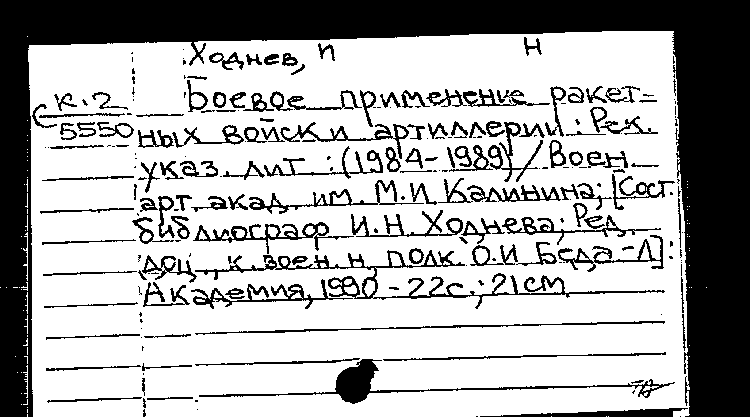 Ходнев, И Н
К.2
5550
Боевое применение ракет-
ных войск и артиллерии: Рек.
указ. лит.: (1984-1989) / Воен.
арт. акад. им. М.И. Калинина; [Сост.
библиограф И.Н. Ходнева; Ред.
доц., к. воен. н, полк. О.И Беда -Л]:
Академия, 1990 - 22с.; 21см